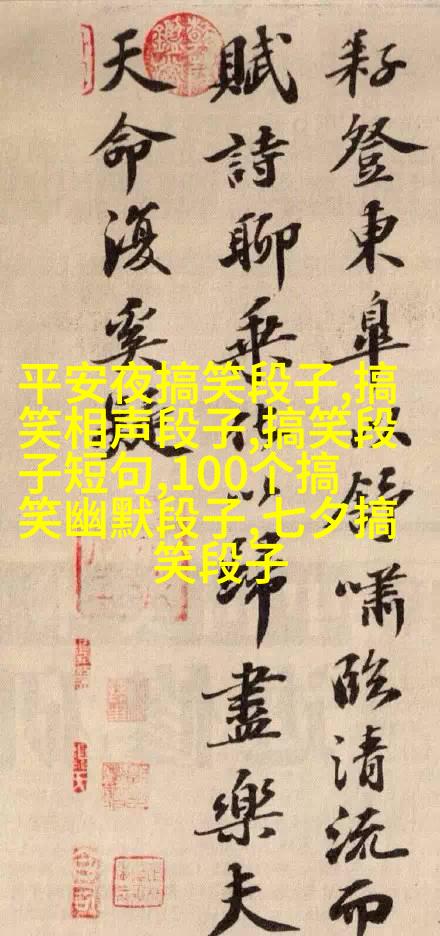 耔登東皋以舒嘯臨清流而
賦詩聊乘化以歸盡樂夫
天命復奚疑
平安夜搞笑段子,搞
笑相声段子,搞笑段
子短句,100个搞
笑幽默段子,七夕搞
笑段子